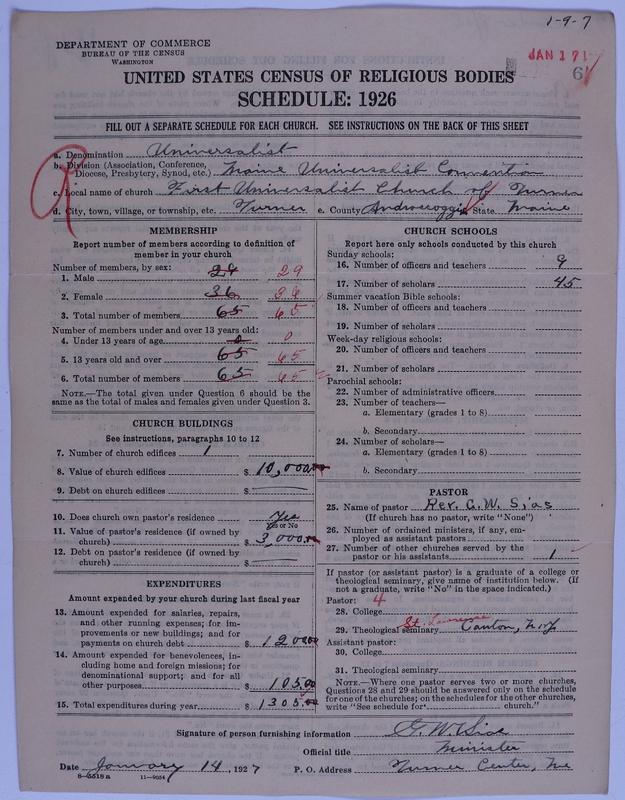 1-9-7
DEPARTMENT OF COMMERCE
BUREAU OF THE CENSUS
WASHINGTON
JAN 17
UNITED STATES CENSUS OF RELIGIOUS BODIES
SCHEDULE: 1926
FILL OUT A SEPARATE SCHEDULE FOR EACH CHURCH. SEE INSTRUCTIONS ON THE BACK OF THIS SHEET
a. Denomination Universalist
b. Division (Association, Conference,
Diocese, Presbytery, Synod, etc.) Maine Universalist Convention
c. Local name of church First Universalist Church of Turner
d. City, town, village, or township, etc. Turner e. County Androscoggin State Maine
MEMBERSHIP
Report number of members according to definition of
member in your church
Number of members, by sex:
1. Male 29 29
2. Female 36 36
3. Total number of members 65 65
Number of members under and over 13 years old:
4. Under 13 years of age 0 0
5. 13 years old and over 65 65
6. Total number of members 65 65
NOTE.—The total given under Question 6 should be the
same as the total of males and females given under Question 3.
CHURCH BUILDINGS
See instructions, paragraphs 10 to 12
7. Number of church edifices 1
8. Value of church edifices $ 10,000.00
9. Debt on church edifices $
10. Does church own pastor's residence Yes
Yes or No
11. Value of pastor's residence (if owned by
church) $ 3,000.00
12. Debt on pastor's residence (if owned by
church) $
EXPENDITURES
Amount expended by your church during last fiscal year
13. Amount expended for salaries, repairs,
and other running expenses; for im-
provements or new buildings; and for
payments on church debt $ 1200.00
14. Amount expended for benevolences, in-
cluding home and foreign missions; for
denominational support; and for all
other purposes $ 105.00
15. Total expenditures during year $ 1305.00
CHURCH SCHOOLS
Report here only schools conducted by this church
Sunday schools:
16. Number of officers and teachers 9
17. Number of scholars 45
Summer vacation Bible schools:
18. Number of officers and teachers
19. Number of scholars
Week-day religious schools:
20. Number of officers and teachers
21. Number of scholars
Parochial schools:
22. Number of administrative officers
23. Number of teachers—
a. Elementary (grades 1 to 8)
b. Secondary
24. Number of scholars—
a. Elementary (grades 1 to 8)
b. Secondary
PASTOR
25. Name of pastor Rev. G. W. Sias
(If church has no pastor, write "None")
26. Number of ordained ministers, if any, em-
ployed as assistant pastors
27. Number of other churches served by the
pastor or his assistants 1
If pastor (or assistant pastor) is a graduate of a college or
theological seminary, give name of institution below. (If
not a graduate, write "No" in the space indicated.)
Pastor: 4
28. College
St. Lawrence
29. Theological seminary Canton, N.Y.
Assistant pastor:
30. College
31. Theological seminary
NOTE.—Where one pastor serves two or more churches,
Questions 28 and 29 should be answered only on the schedule
for one of the churches; on the schedules for the other churches,
write "See schedule for church."
Signature of person furnishing information G. W. Sias
Official title Minister
Date January 14, 1927 P. O. Address Turner Center, Me
8-5518a 11-9054